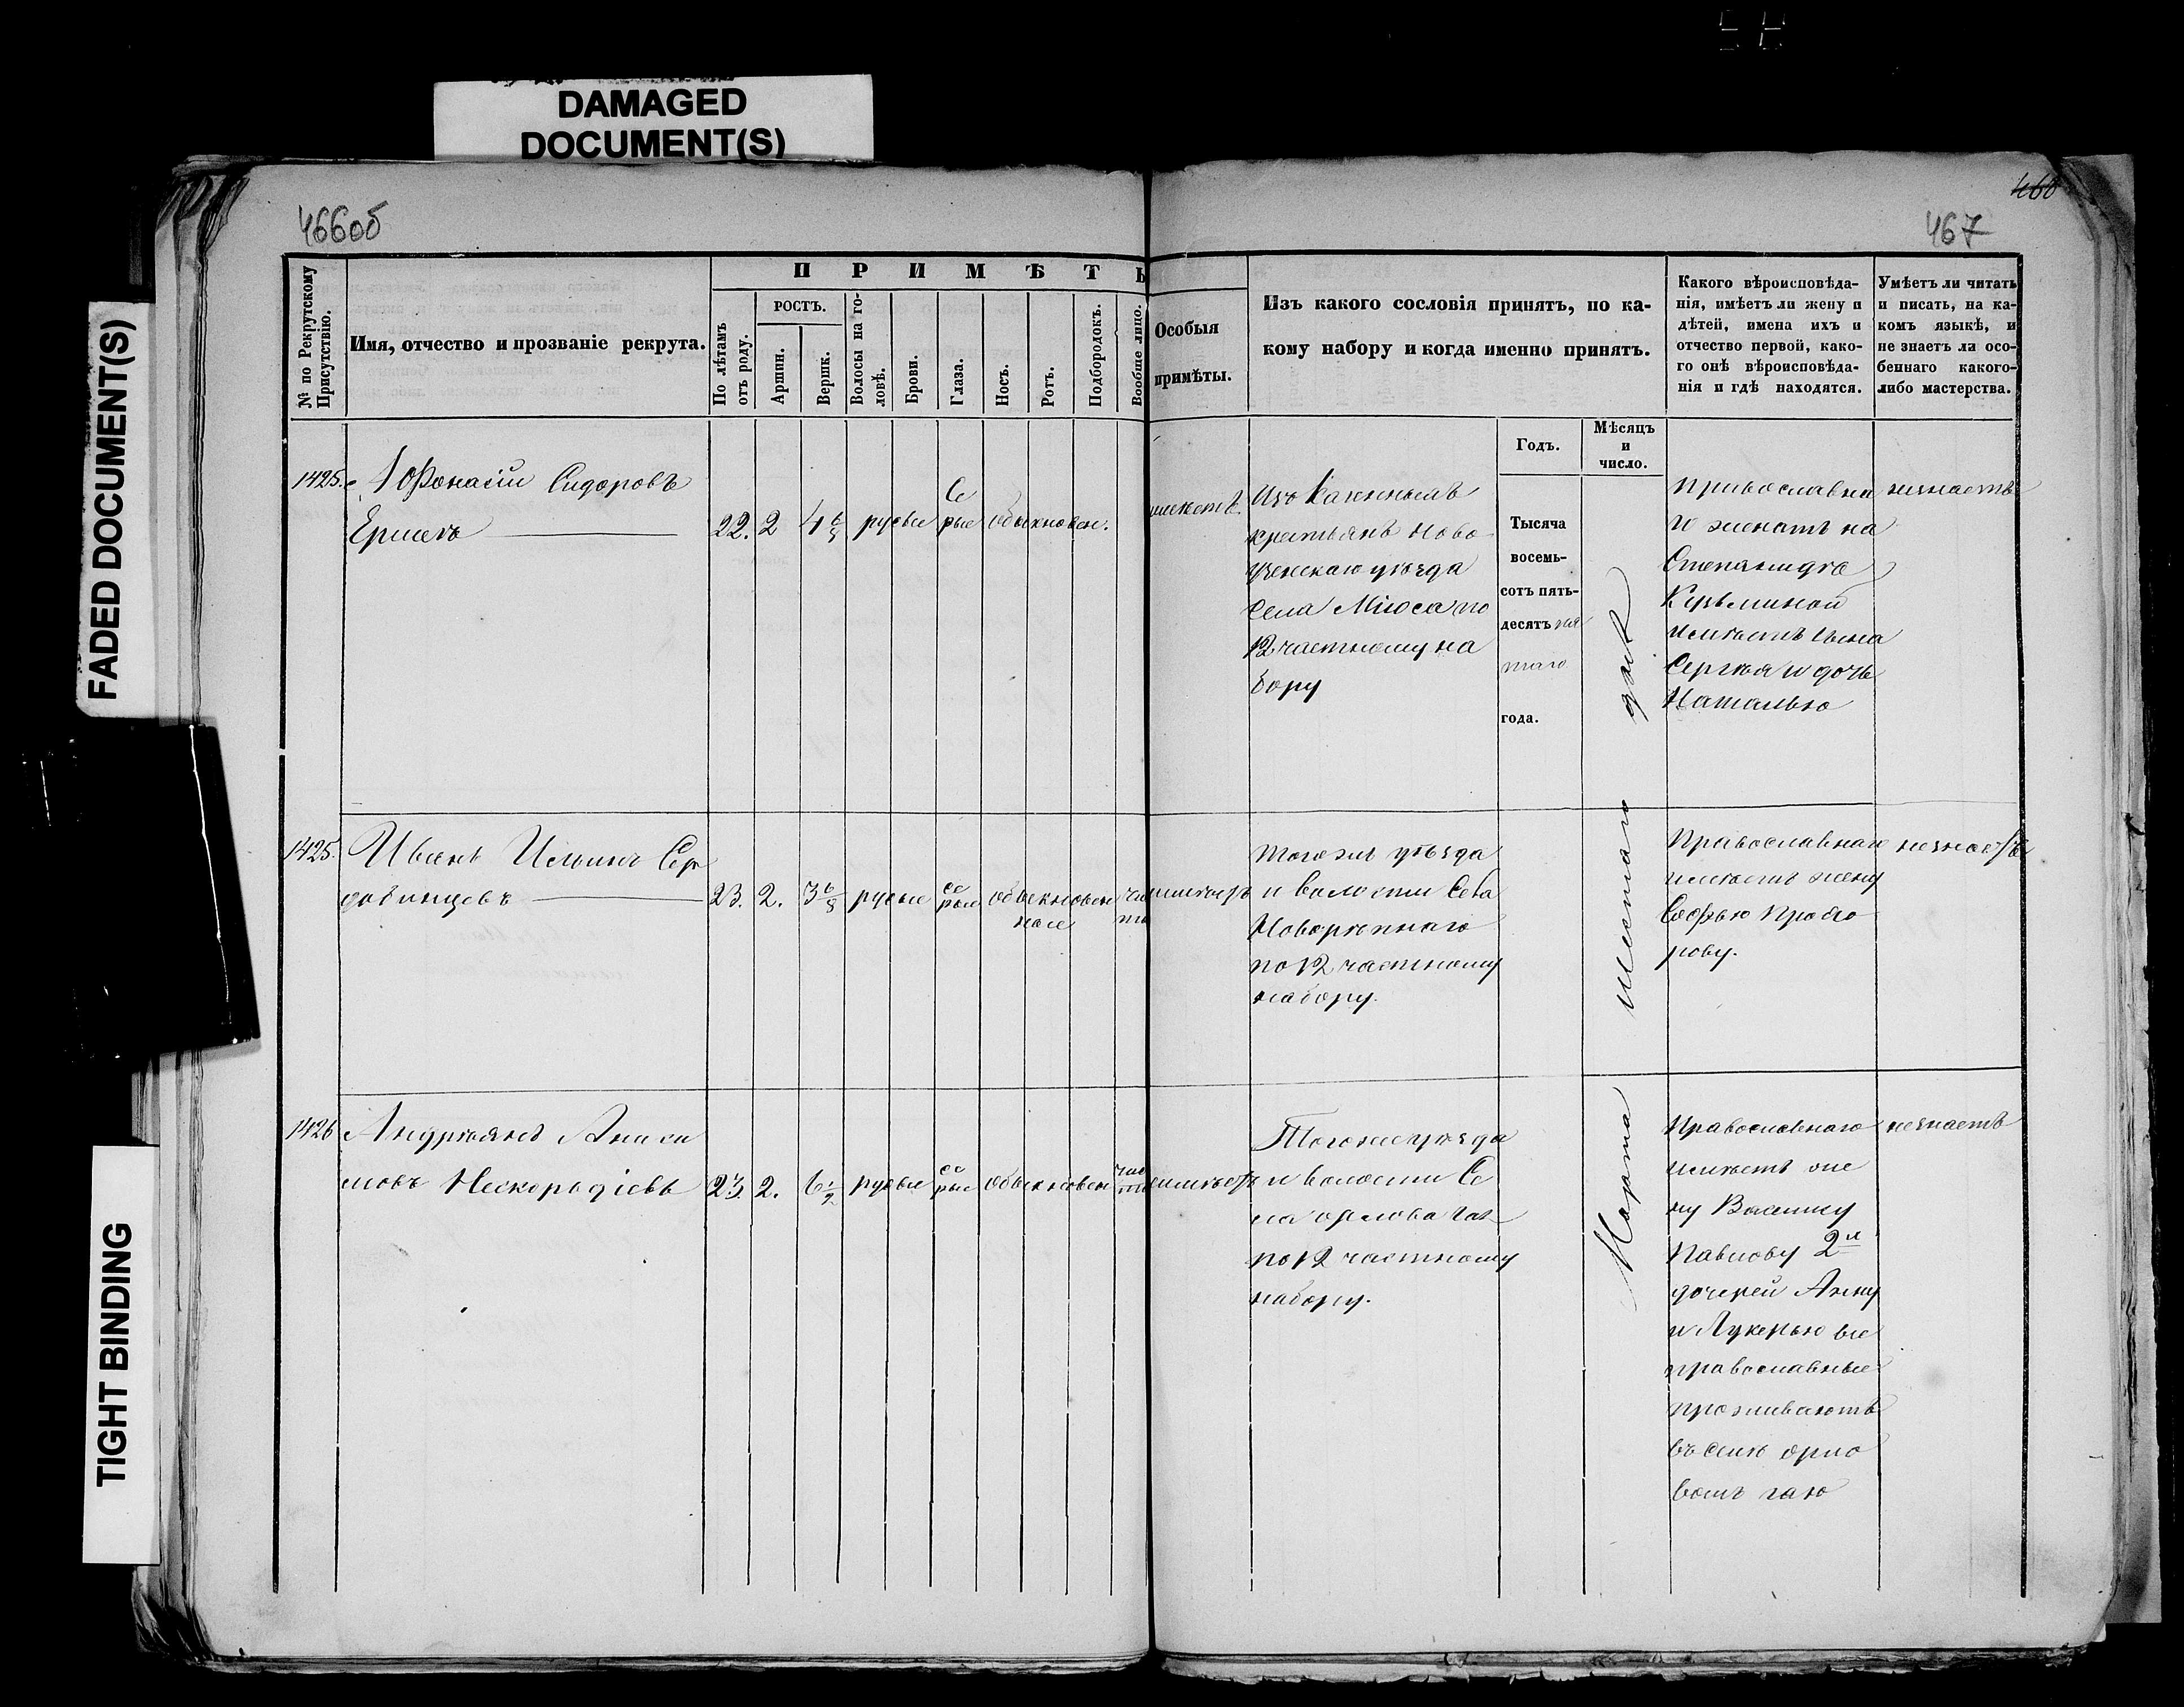 DAMAGED
DOCUMENT(S)
FADED DOCUMENT(S)
TIGHT BINDING
466об
460
467
№ по Рекрутскому
Присутствію.
Имя, отчество и прозваніе рекрута.
ПРИМѢТЫ
По лѣтамъ
отъ роду.
РОСТЪ.
Аршин.
Вершк.
Волосы на го-
ловѣ.
Брови.
Глаза.
Носъ.
Ротъ.
Подбородокъ.
Вообще лицо.
Особыя
примѣты.
Изъ какого сословія принятъ, по ка-
кому набору и когда именно принятъ.
Годъ.
Мѣсяцъ
и
число.
Какого вѣроисповѣда-
нія, имѣетъ ли жену и
дѣтей, имена ихъ и
отчество первой, како-
го онѣ вѣроисповѣда-
нія и гдѣ находятся.
Умѣетъ ли читать
и писать, на ка-
комъ языкѣ, и
не знаетъ ли осо-
беннаго какого-
либо мастерства.
1425.
Афонасій Сидоровъ
Ершевъ
22. 2 4 6/8 русые
Се
рые
обыкновен.
Изъ Казенныхъ
крестьянъ Ново
узенскаго уѣзда
Села Міюса по
12 частному на
бору
Тысяча
восемь-
сотъ пять-
десятъ пя
таго
года.
Православна
го женатъ на
Степанидѣ
Кузьминой
имѣетъ сына
Сергѣя и дочь
Наталью
незнаетъ
Марта шестаго дня
1425.
Иванъ Ильинъ Сер
добинцевъ
23. 2. 3 6/8 русые
се
рые
обыкновен
ное
чис
то
неимѣетъ
тогоже уѣзда
и волости Села
Новорѣпнаго
по 12 частному
набору.
Православнаго
имѣетъ жену
Софью Прохо
рову.
незнаетъ
1426
Андреянъ Аниси
мовъ Нескородіевъ
23 2. 6 1/2 русые
се
рые
обыкновен
чис
то
неимѣетъ
Тогоже уѣзда
и волости Се
ла Орлова Гая
по 12 частному
набору.
Православнаго
имѣетъ же
ну
Павлову 2х
дочерей Анну
и Лукерью все
православные
проживаютъ
въ селѣ Орло
вомъ гаю
незнаетъ